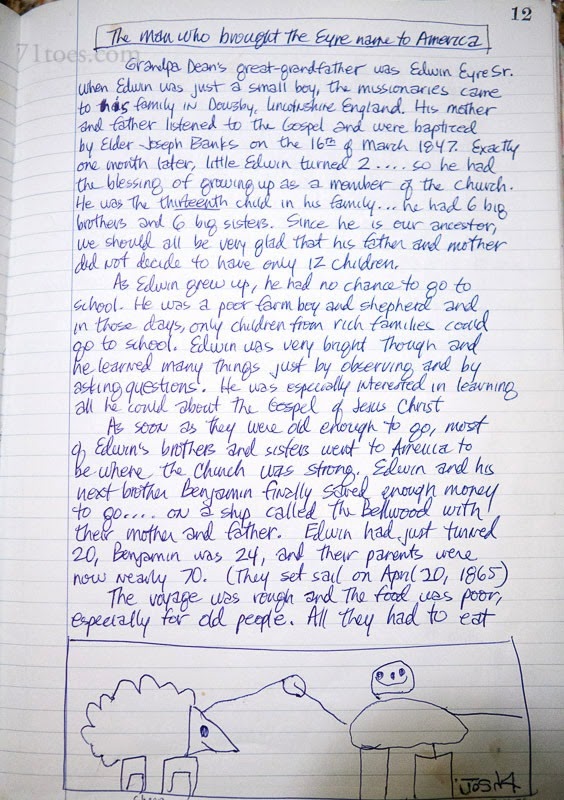 12
The man who brought the Eyre name to America
71toes.com
Grandpa Dean's great-grandfather was Edwin Eyre Sr.
When Edwin was just a small boy, the missionaries came
to his family in Dowsby, Lincolnshire England. His mother
and father listened to the Gospel and were baptized
by Elder Joseph Banks on the 16th of March 1847. Exactly
one month later, little Edwin turned 2.... so he had
the blessing of growing up as a member of the church.
He was the thirteenth child in his family... he had 6 big
brothers and 6 big sisters. Since he is our ancestor,
we should all be very glad that his father and mother
did not decide to have only 12 children.
As Edwin grew up, he had no chance to go to
school. He was a poor farm boy and shepherd and
in those days, only children from rich families could
go to school. Edwin was very bright though and
he learned many things just by observing and by
asking questions. He was especially interested in learning
all he could about the Gospel of Jesus Christ
As soon as they were old enough to go, most
of Edwin's brothers and sisters went to America to
be where the Church was strong. Edwin and his
next brother Benjamin finally saved enough money
to go.... on a ship called the Bellwood with
their mother and father. Edwin had just turned
20, Benjamin was 24, and their parents were
now nearly 70. (They set sail on April 20, 1865)
The voyage was rough and the food was poor,
especially for old people. All they had to eat